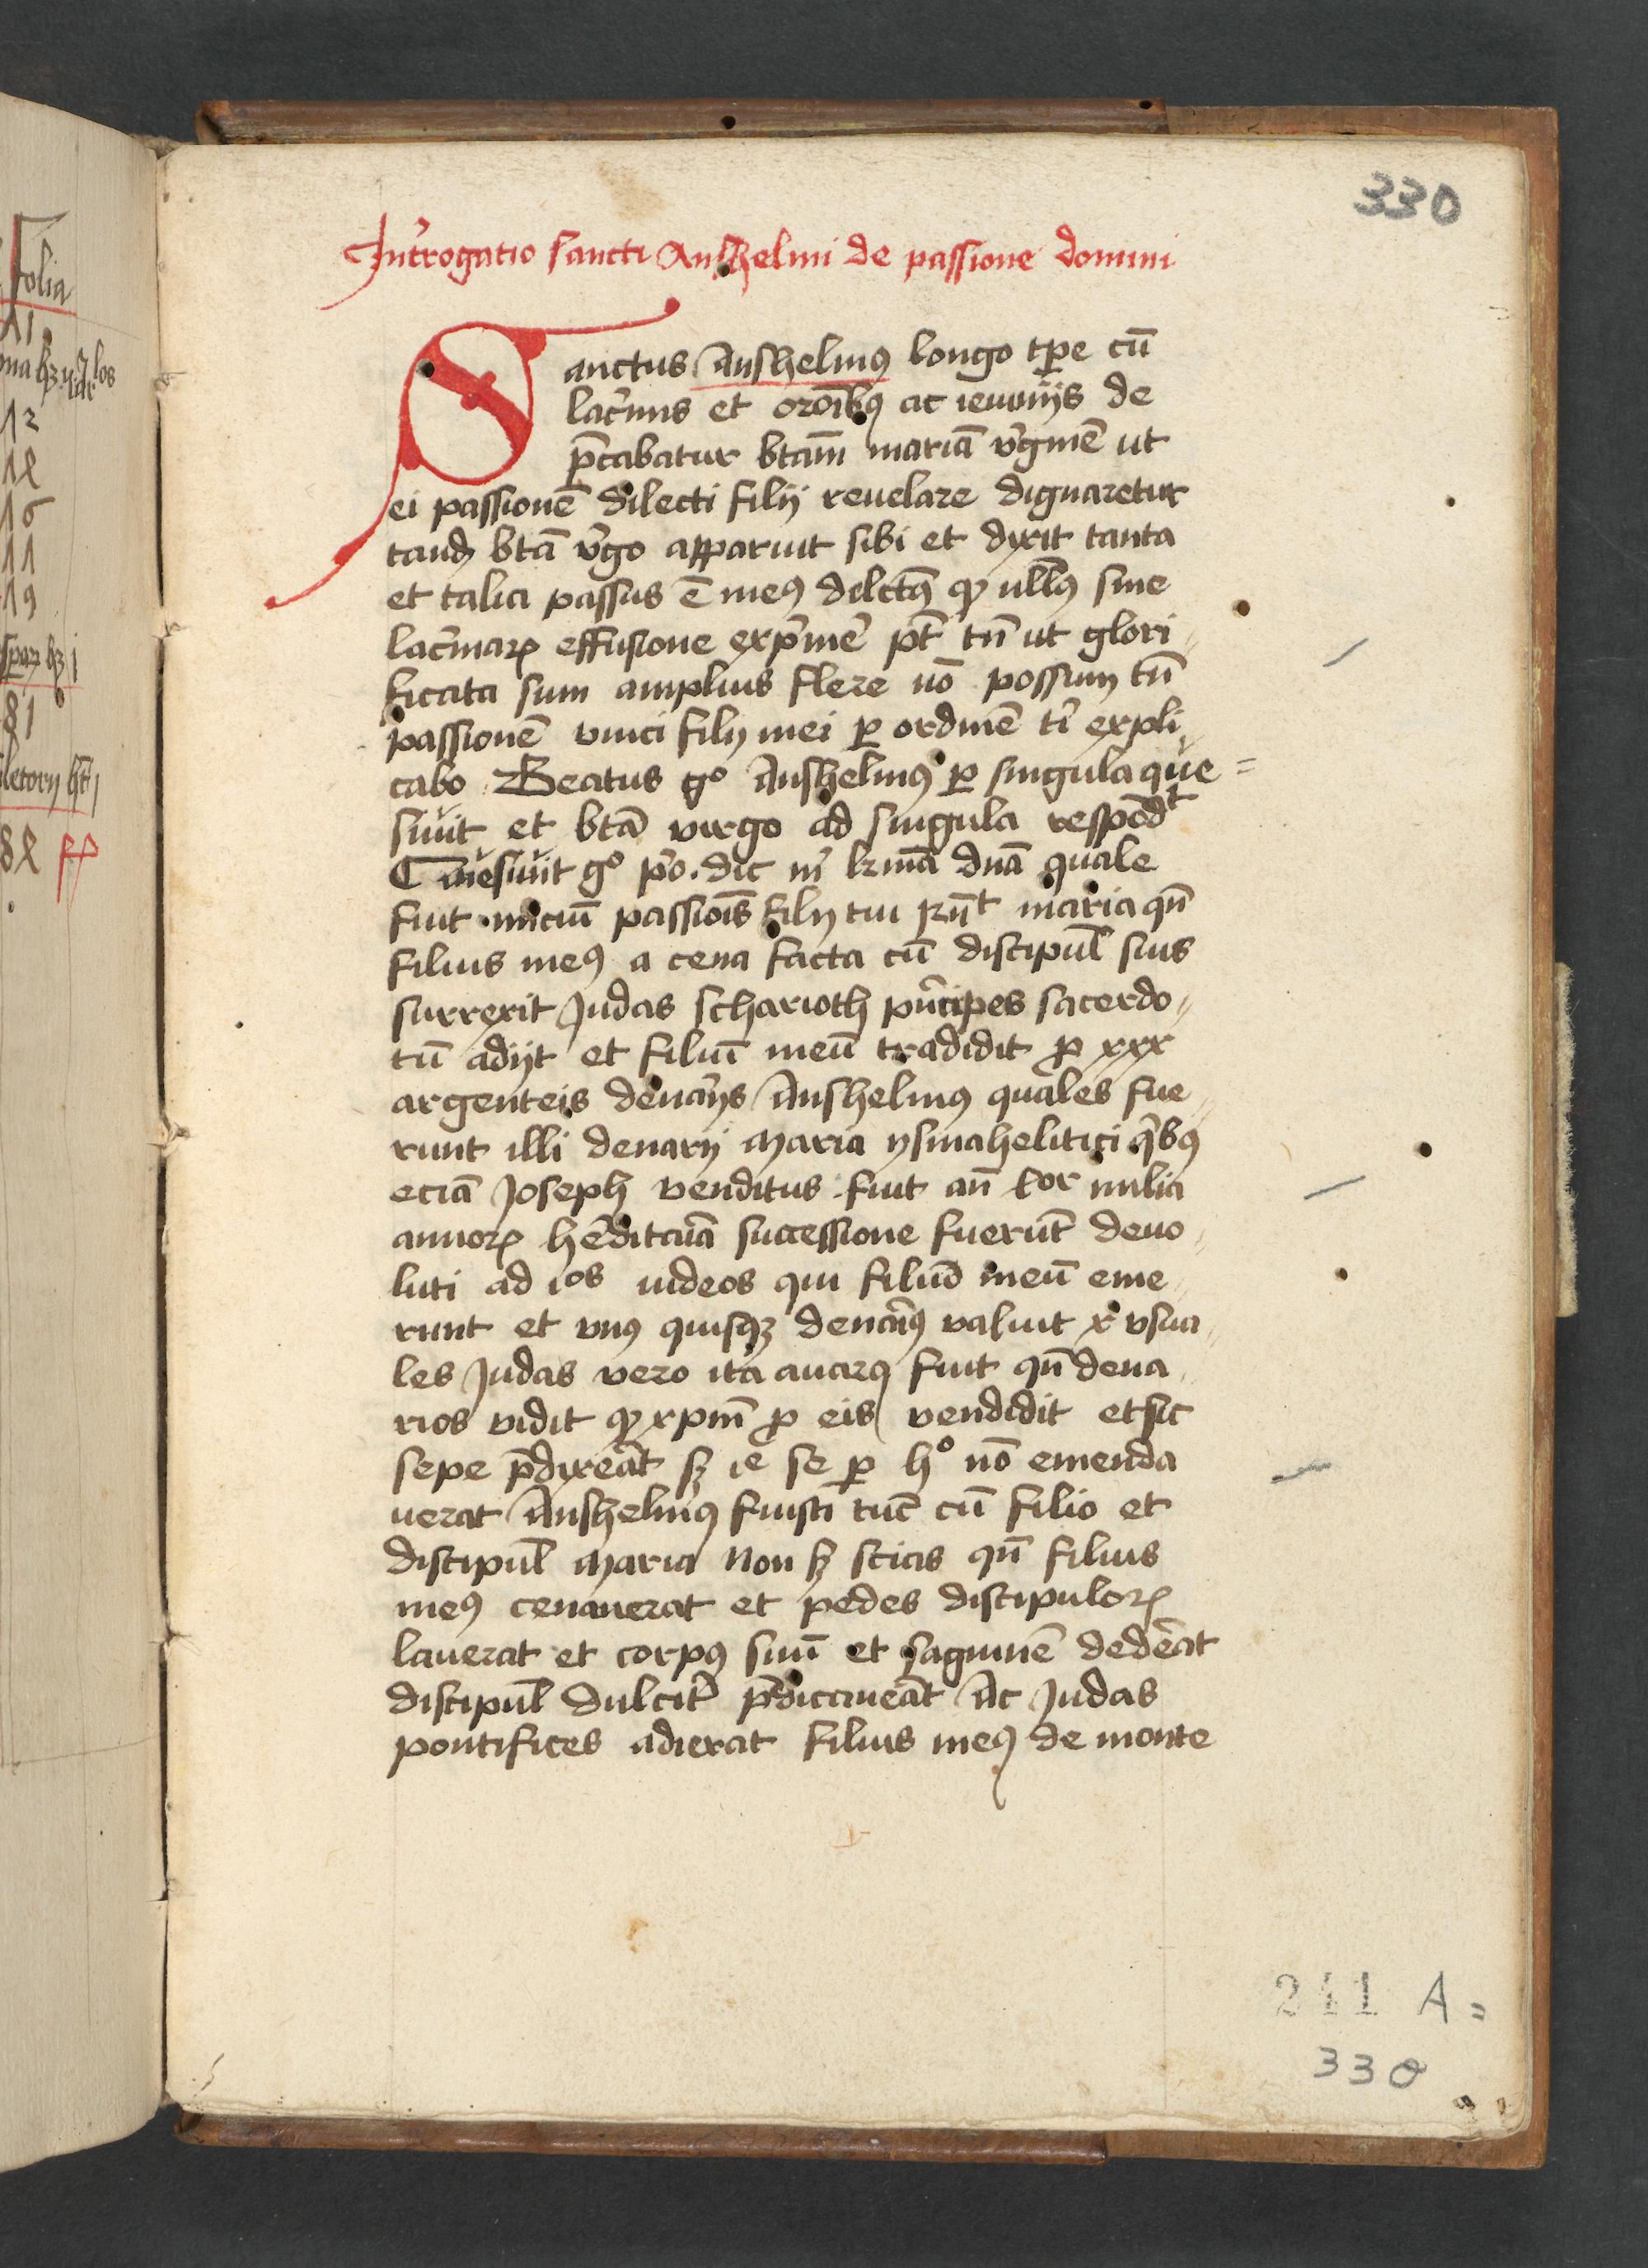 330
Int͛rogatio sancti Anshelmi de passione domini
Sanctus Anshelmꝰ longo tp̄e cū
lac͛mis et or̄oībꝰ ac ieiunijs de
p̄cabatur btām mariā v͛ginē ut
ei passionē dilecti filij reuelare dignaretur
tand btā v͛go apparuit sibi et dixit tanta
et talia passus ē meꝰ dilctꝰ ꝙ ullꝰ sine
lac͛maꝝ effusione exp͛me͛ pt̄ tn̄ ut glori
ficata sum amplius flere nō possum tn̄
passionē vnici filij mei ꝑ ordinē t͛ expli
cabo Beatus g° Anshelmꝰ ꝑ singula que
siuit et btā virgo ad singula respōdt
Quesiuit g° p͛o. dic m͛ kr̄ma dn̄a quale
fuit iniciū passiois filij tui Rn̄t maria qn̄
filius meꝰ a cena facta cū discipul̄ suis
surrexit Judas scharioth pn͛cipes sacerdo
tū adijt et filiū meū tradidit ꝓ xxx
argenteis denarijs Anshelmꝰ quales fue
runt illi denarij Maria ysmahelitici q͛bꝰ
eciā Joseph venditus fuit an̄ milia
annoꝝ he͛ditaria successione fuerūt deuo
luti ad ios iudeos qui filiū meū eme
runt et vnꝰ quisqꝫ denariꝰ valuit x vsua
les Judas vero ita auarꝰ fuit qn̄ dena
rios vidit ꝙ xpm̄ ꝓ eis vendidit et sic
sepe p̄dixe͛at sꝫ ie se ꝑ h° nō emenda
uerat Anshelmꝰ fuisti tūc cū filio et
discipul̄ Maria Non sꝫ scias qn̄ filius
meꝰ cenauerat et pedes discipuloꝝ
lauerat et corpꝰ suū et saguinē dede͛at
discipul̄ dulcit͛ p̄dicaue͛at Ac Judas
pontifices adierat filius meꝰ de monte
241 A =
330
folia